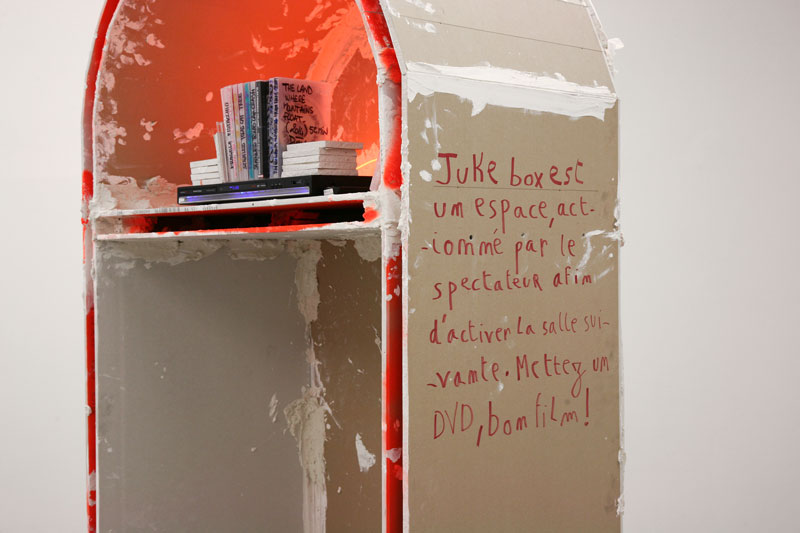 THE LAND
WHERE
MOUNTAINS
FLOAT.
Juke box est
un espace, act-
-ionné par le
spectateur afin
d'activer la salle sui-
-vante. Mettez un
DVD, bon film !